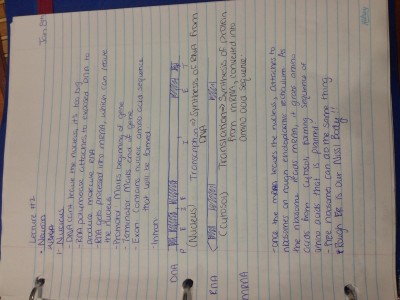 Jan 8th
Lecture #2
- Neuron
- Nucleus
- DNA can't leave the nucleus, it's too big
- RNA polymerase attaches to exposed DNA to
produce molecule, RNA
- RNA gets processed into mRNA, which can leave
the nucleus
- Promotor Marks beginning of gene
- Terminator Marks end of gene
- Exon contains nucleic amino acid sequence
that will be formed
- Intron
DNA
P E I E I E T
(Nucleus) Transcription → Synthesis of RNA from
DNA
RNA
(Cytosol) Translation → Synthesis of protein
from mRNA, converted into
amino acid sequence
mRNA
- Once the mRNA leaves the nucleus, attaches to
ribosomes on rough endoplasmic reticulum. As
the ribosome reads mRNA, it grabs amino
acids from cytosol, forming sequence of
amino acids that is planned
- Free ribosomes can do the same thing
* Rough ER is our Nissl Body!